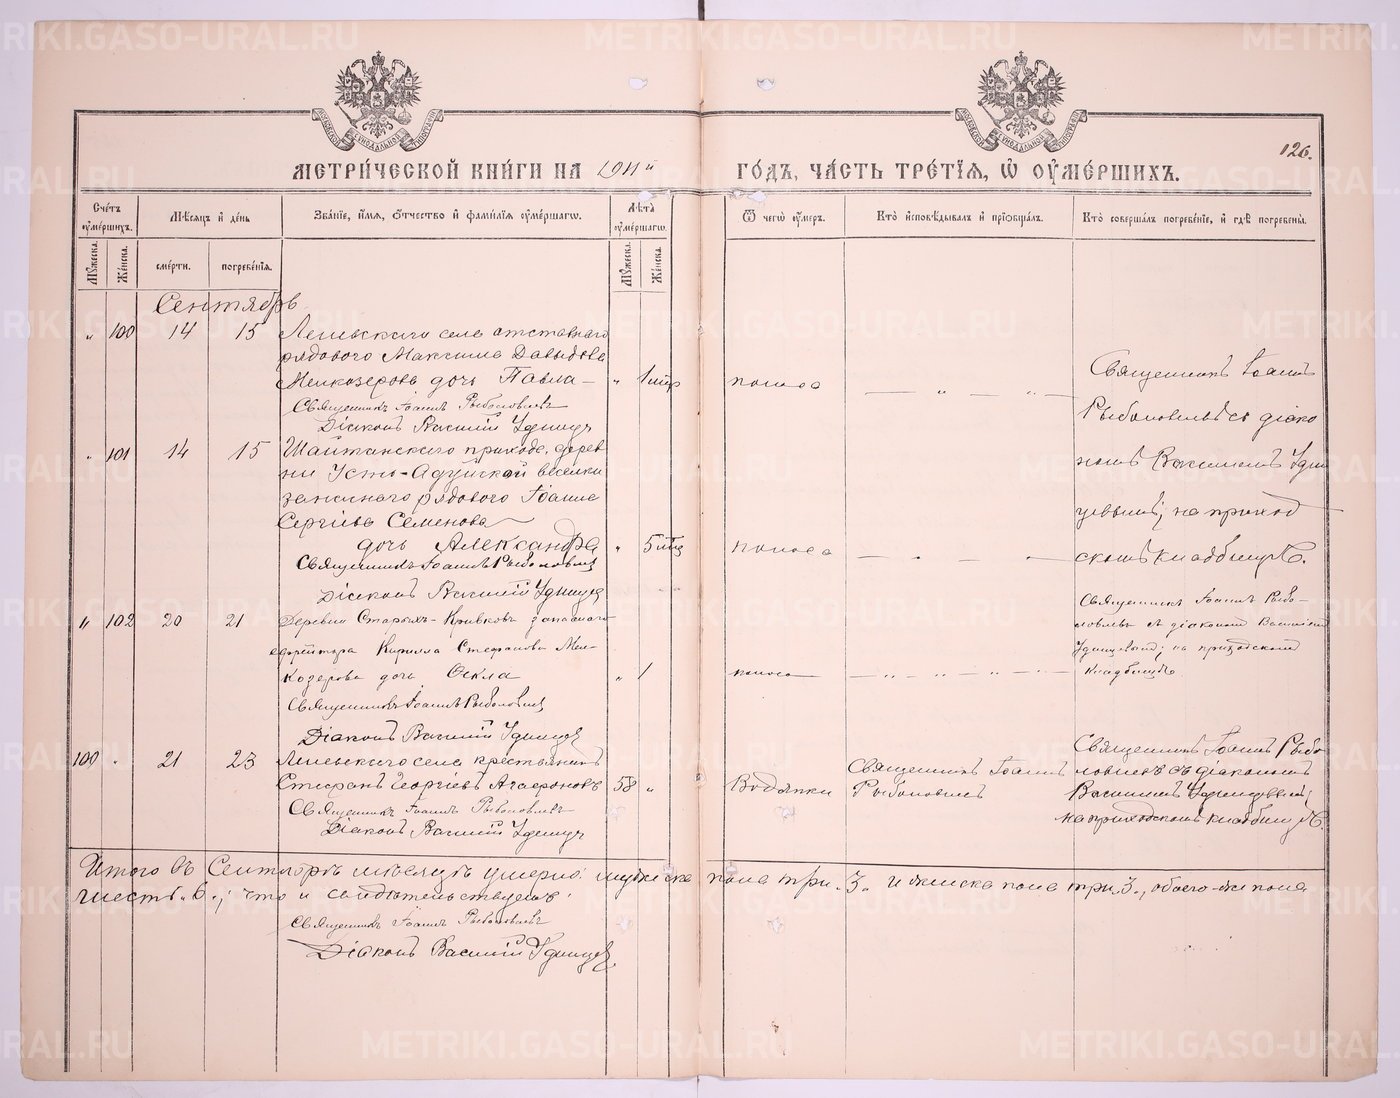 МЕТРИ́ЧЕСКОЙ КНИ́ГИ НА 1911й
ГО́ДЪ, ЧА́СТЬ ТРЕ́ТІѦ, Ѡ ОУ҆МЕ́РШИХЪ.
126.
Сче́тъ оу҆ме́ршихъ.
Мѣ́сѧцъ и҆ де́нь
Зва́нїе, и҆́мѧ, ѻ҆́тчество и҆ фами́лїѧ оу҆ме́ршагѡ.
Лѣ́та оу҆ме́ршагѡ.
Ѿ чегѡ̀ оу҆́меръ.
Кто̀ и҆сповѣ́дывалъ и҆ прїѡбща́лъ.
Кто̀ соверша́лъ погребе́нїе, и҆ гдѣ̀ погребе́ны.
Мꙋ́жеска.
Же́нска.
сме́рти.
погребе́нїѧ.
Мꙋ́жеска.
Же́нска.
Сентябрь
" 100 14 15 Леневскаго села отставнаго
рядового Максима Давыдова
Мелкозерова дочь Павла — " 1 мѣс поноса — " — " —
Священникъ Іоаннъ Рыболовлевъ
Діаконъ Василій Удинцев
Священникъ Іоаннъ
Рыболовлевъ съ діако
номъ Василіемъ Удин
цевымъ; на приход
скомъ кладбищѣ.
" 101 14 15 Шайтанскаго прихода, дерев
ни Усть-Адуйской
запаснаго рядового Іоанна
Сергіева Семенова
дочь Александра " 5 мѣс поноса — " — " —
Священникъ Іоаннъ Рыболовлев
Діаконъ Василій Удинцев
" 102 20 21 Деревни Старыхъ-Кривковъ запаснаго
ефрейтора Кирилла Стефанова Мел-
козерова дочь Ѳекла " 1 поноса — " — " — " —
Священникъ Іоаннъ Рыболовлев
Діаконъ Василій Удинцев
Священникъ Іоаннъ Рыбо-
ловлевъ съ діакономъ Василіемъ
Удинцевымъ; на приходскомъ
кладбищѣ.
100 " 21 23 Леневскаго села крестьянинъ
Стефанъ Георгіевъ Агафоновъ 58 " Водянки
Священникъ Іоаннъ Рыболовлевъ
Діаконъ Василій Удинцев
Священникъ Іоаннъ
Рыболовлевъ
Священникъ Іоаннъ Рыбо
ловлевъ съ діакономъ
Василіемъ Удинцевымъ;
на приходскомъ кладбищѣ.
Итого въ Сентябрѣ мѣсяцѣ умерло: мужеска пола три „3„ и женска пола три „3„, обоего-же пола
шесть „6„; что и свидѣтельствуемъ:
Священникъ Іоаннъ Рыболовлевъ
Діаконъ Василій Удинцев